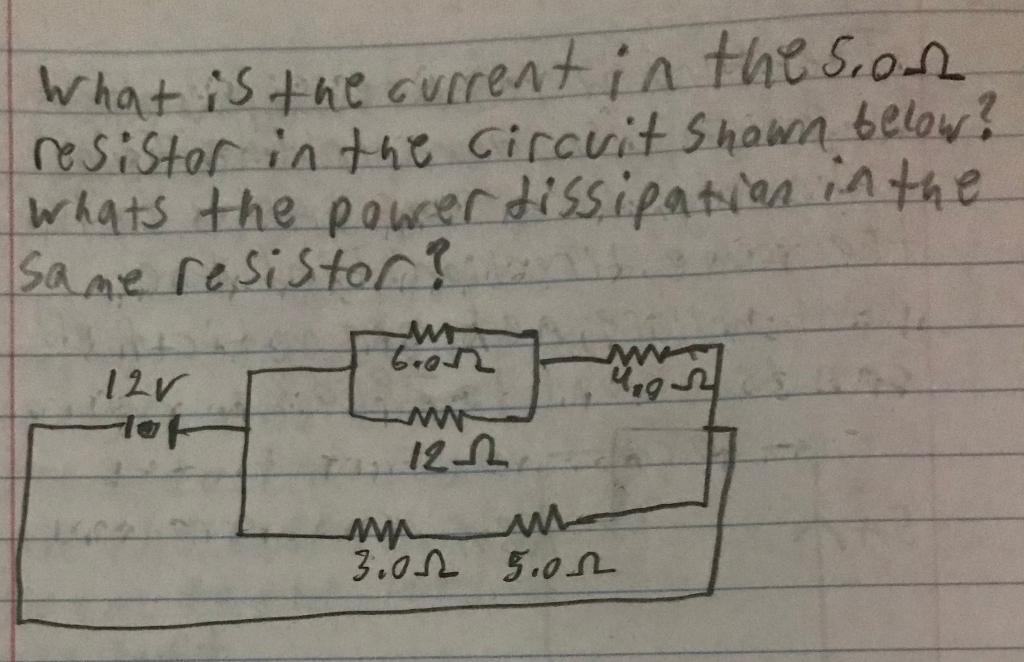 What is the current in the 5.0Ω
resistor in the circuit shown below?
whats the power dissipation in the
same resistor?
6.0Ω
12V
4.0Ω
12Ω
3.0Ω 5.0Ω